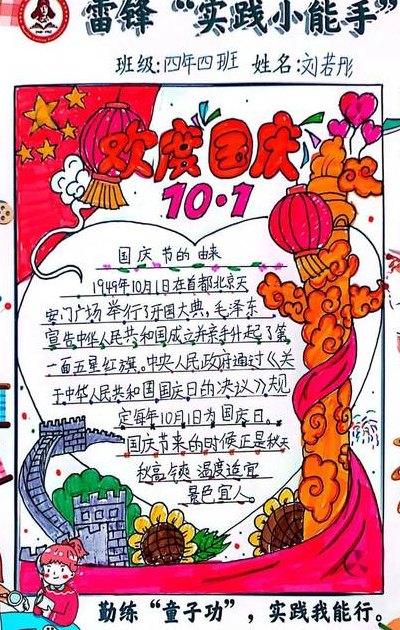 雷锋“实践小能手”
班级:四年四班 姓名:刘若彤
欢度国庆
10·1
国庆节的由来
1949年10月1日在首都北京天
安门广场举行了开国大典，毛泽东
宣告中华人民共和国成立并亲手升起了第
一面五星红旗。中央人民政府通过《关
于中华人民共和国国庆日的决议》规
定每年10月1为国庆日。
国庆节来的时候正是秋天
秋高气爽 温度适宜
景色宜人。
勤练“童子功”，实践我能行。